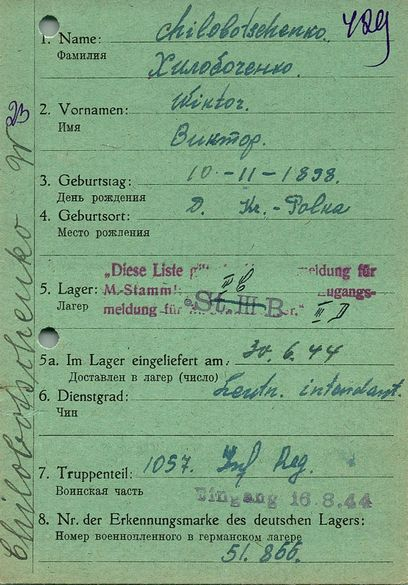 429
1. Name: Chilobotschenko.
Фамилия
Хилобоченко.
2. Vornamen: Wiktor.
Имя
Виктор.
23
3. Geburtstag: 10-11-1898.
День рождения
4. Geburtsort: D. Kr.-Polka
Место рождения
„Diese Liste meldung für
5. Lager: M.-Stamml. III C Zugangs-
Лагер St. III B
meldung für III D
5a. Im Lager eingeliefert am: 30.6.44
Доставлен в лагер (число)
6. Dienstgrad: Leutn. intendant.
Чин
7. Truppenteil: 1057. Inf Reg.
Воинская часть
Eingang 16.8.44
8. Nr. der Erkennungsmarke des deutschen Lagers:
Номер военнопленного в германском лагере
51.866.
Chilobotschenko W